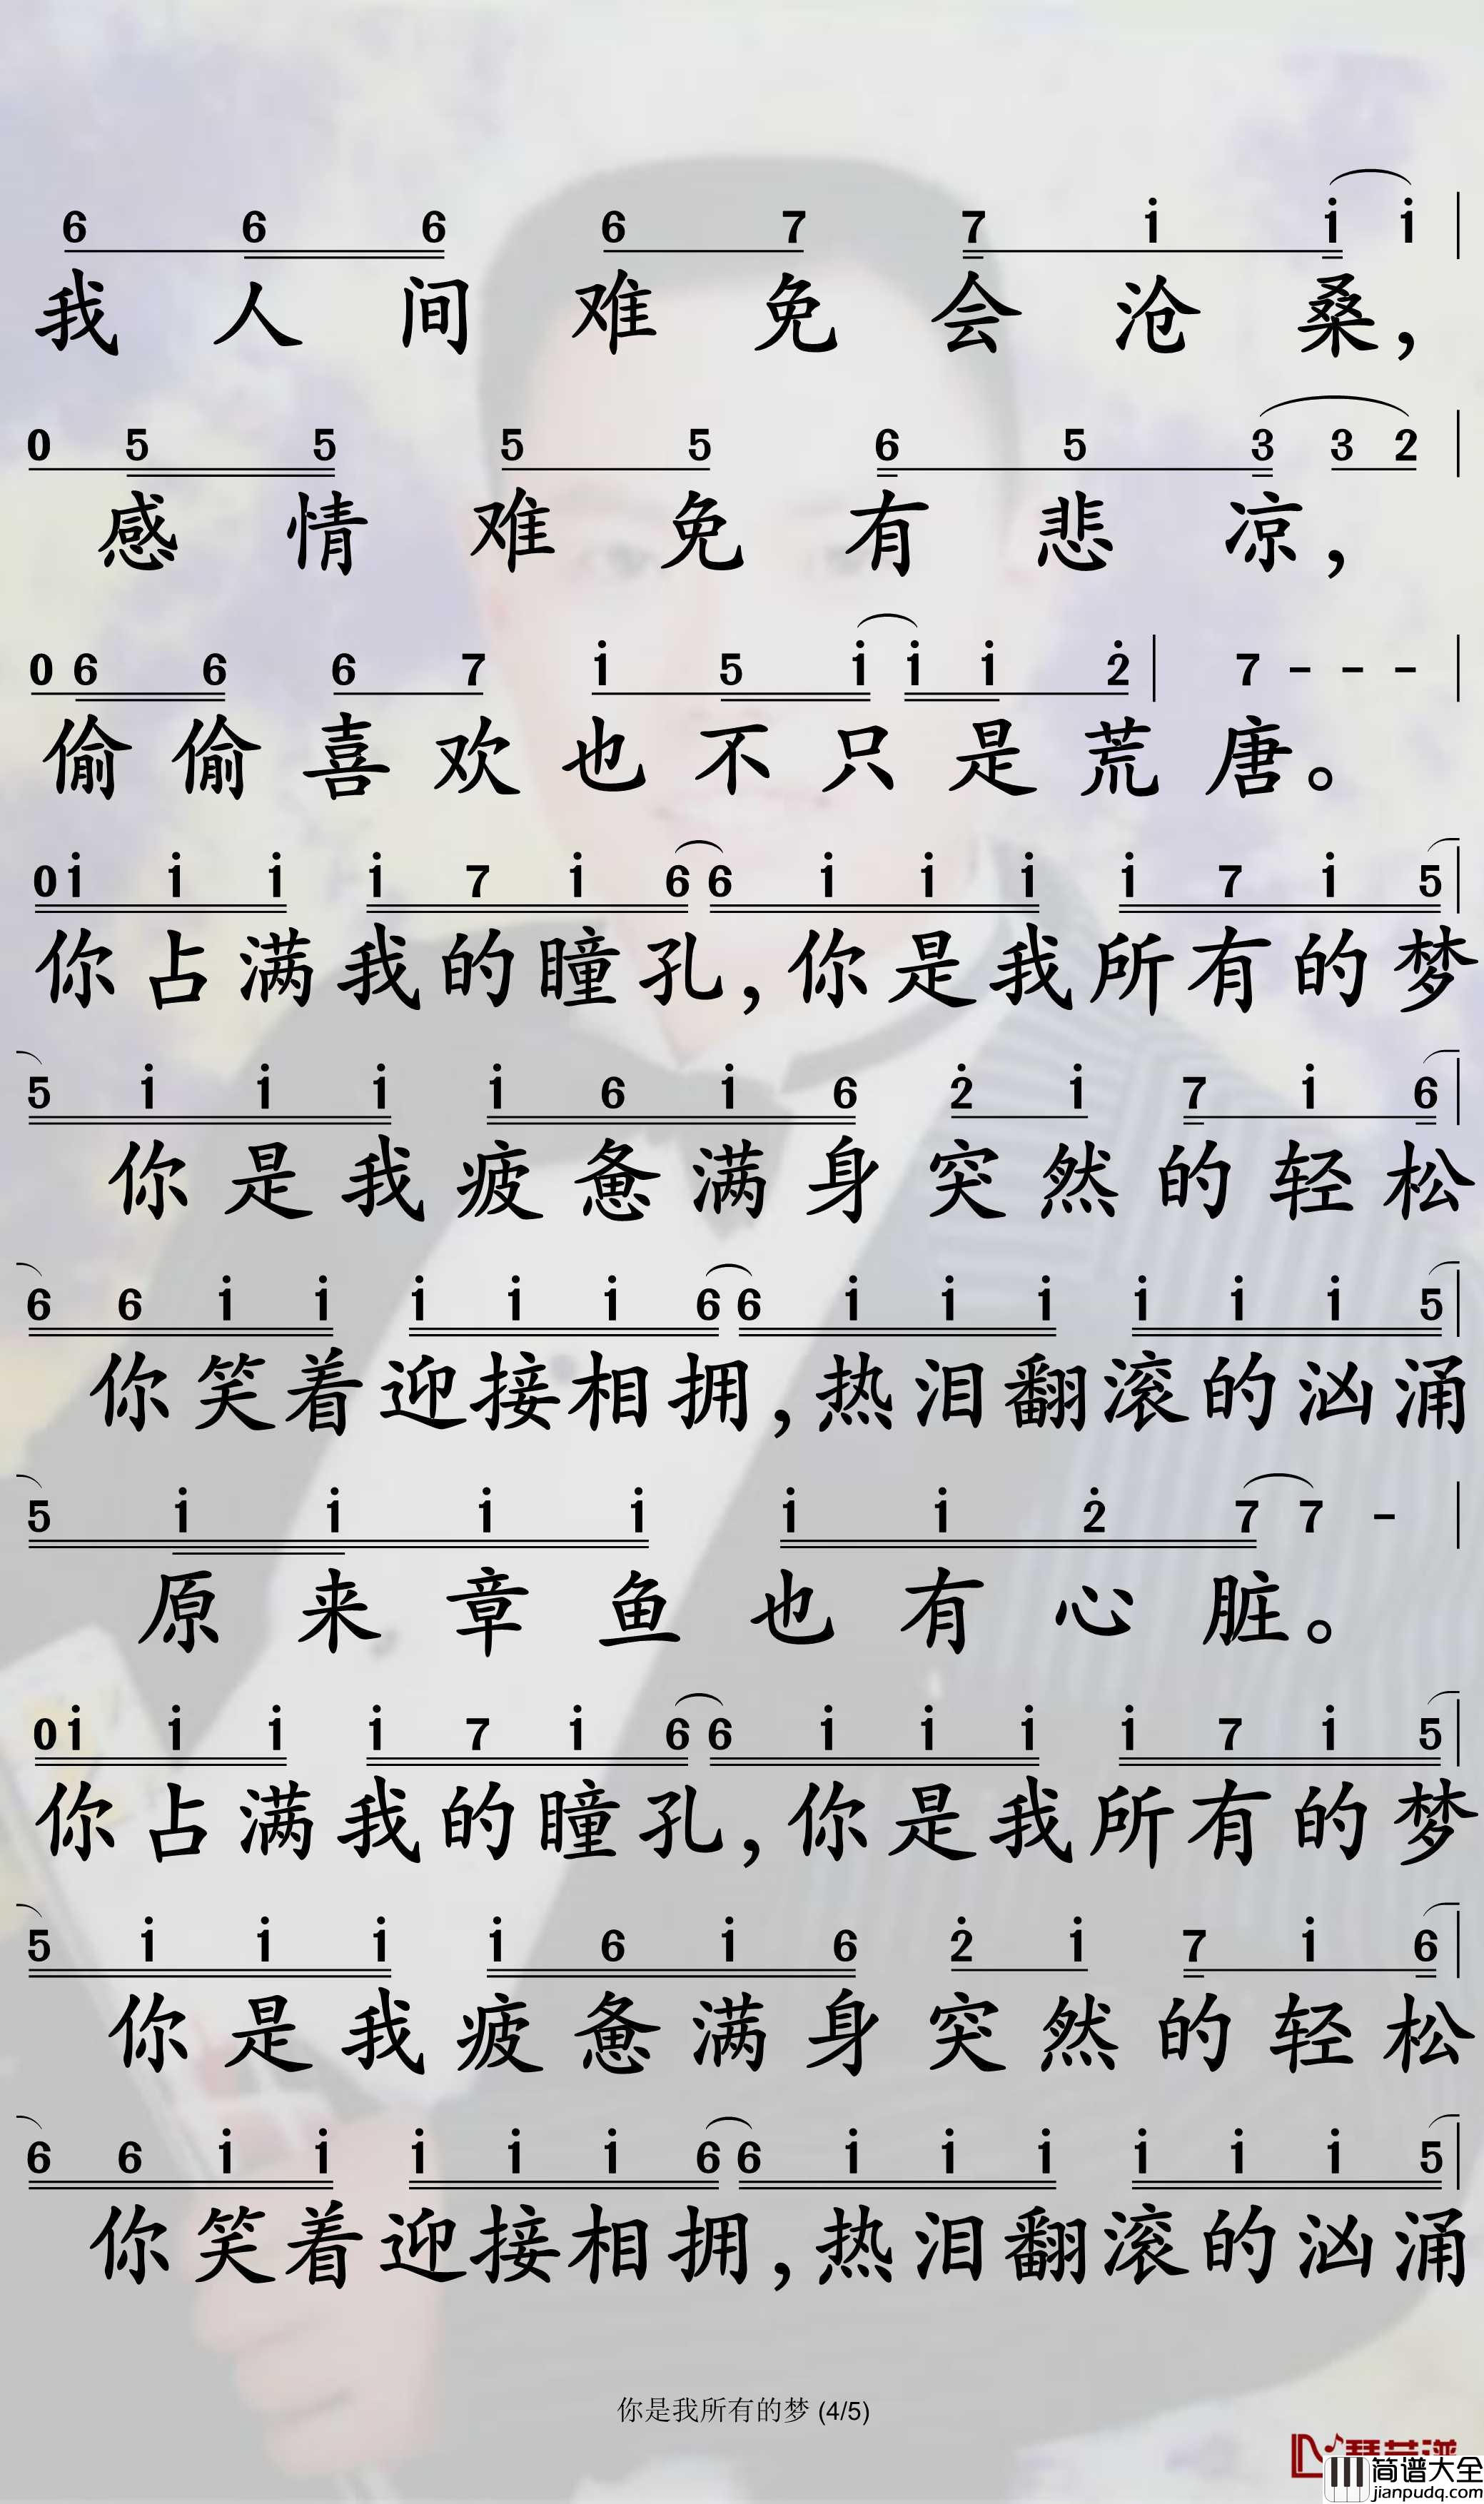 6 6 6 6 7 7 i i i
我人间难免会沧桑，
0 5 5 5 5 6 5 3 3 2
感情难免有悲凉，
0 6 6 6 7 i 5 i i i 2̇ | 7 - - -
偷偷喜欢也不只是荒唐。
0 i i i i 7 i 6 6 i i i i 7 i 5
你占满我的瞳孔，你是我所有的梦
5 i i i i 6 i 6 2̇ i 7 i 6
你是我疲惫满身突然的轻松
6 6 i i i i i 6 6 i i i i i i 5
你笑着迎接相拥，热泪翻滚的汹涌
5 i i i i i i 2̇ 7 7 -
原来章鱼也有心脏。
0 i i i i 7 i 6 6 i i i i 7 i 5
你占满我的瞳孔，你是我所有的梦
5 i i i i 6 i 6 2̇ i 7 i 6
你是我疲惫满身突然的轻松
6 6 i i i i i 6 6 i i i i i i 5
你笑着迎接相拥，热泪翻滚的汹涌
你是我所有的梦 (4/5)
简谱大全
jianpudq.com